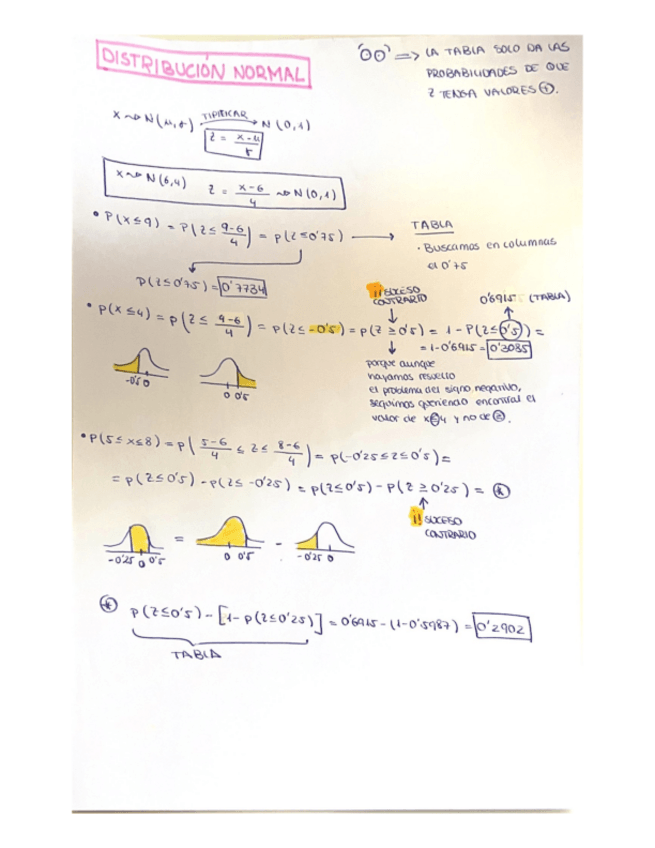 DISTRIBUCIÓN NORMAL
'ÓÓ' => LA TABLA SOLO DA LAS
PROBABILIDADES DE QUE
Z TENGA VALORES ⊕.
X ~> N(μ,σ) TIPIFICAR → N(0,1)
Z = X-μ/σ
X ~> N(6,4) Z = X-6/4 ~> N(0,1)
• P(X≤9) = P(Z≤ 9-6/4) = P(Z≤0'75) →
TABLA
· Buscamos en columnas
el 0'75
P(Z≤0'75) = 0'7734
!! SUCESO
CONTRARIO
0'6915 (TABLA)
• P(X≤4) = P(Z≤ 4-6/4) = P(Z≤-0'5) = P(Z≥0'5) = 1-P(Z≤0'5) =
= 1-0'6915 = 0'3085
-0'5 0
0 0'5
porque aunque
hayamos resuelto
el problema del signo negativo,
seguimos queriendo encontrar el
valor de X≤4 y no de ≥.
• P(5≤X≤8) = P(5-6/4 ≤ Z ≤ 8-6/4) = P(-0'25≤Z≤0'5) =
= P(Z≤0'5) - P(Z≤-0'25) = P(Z≤0'5) - P(Z≥0'25) = ⊛
!! SUCESO
CONTRARIO
-0'25 0 0'5 = 0 0'5 - -0'25 0
⊛ P(Z≤0'5) - [1-P(Z≤0'25)] = 0'6915 - (1-0'5987) = 0'2902
TABLA